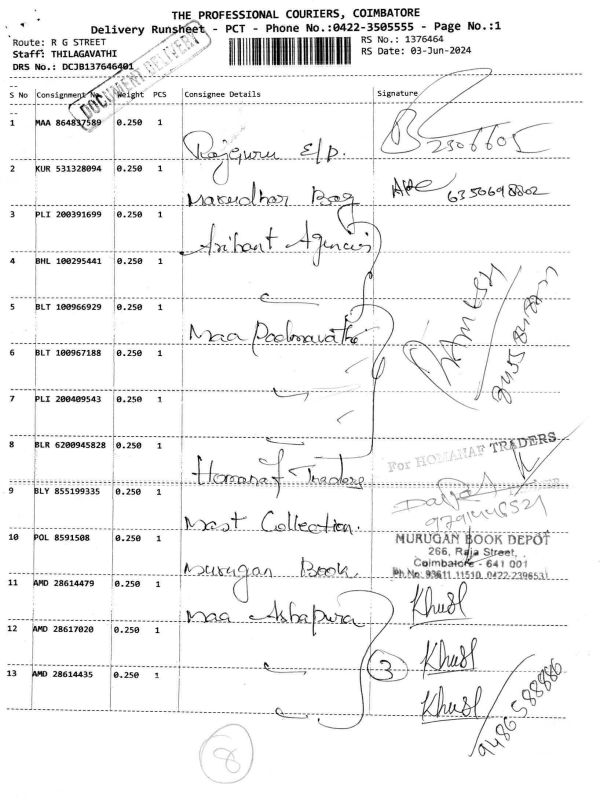 THE PROFESSIONAL COURIERS, COIMBATORE
Delivery Runsheet - PCT - Phone No.:0422-3505555 - Page No.:1
Route: R G STREET
RS No.: 1376464
Staff: THILAGAVATHI
RS Date: 03-Jun-2024
DRS No.: DCJB137646401
DOCUMENT DELIVERY
S No Consignment No. Weight PCS Consignee Details Signature
1 MAA 864837589 0.250 1 Rajguru E/P. 2306605
2 KUR 531328094 0.250 1 Marudhar Bag 6350698802
3 PLI 200391699 0.250 1 Arihant Agencies
4 BHL 100295441 0.250 1
5 BLT 100966929 0.250 1 Maa Padmavathi
RAMESH
6 BLT 100967188 0.250 1
7 PLI 200409543 0.250 1
8 BLR 6200945828 0.250 1 Homanaf Traders
For HOMANAF TRADERS
9 BLY 855199335 0.250 1 Mast Collection.
9791448521
10 POL 8591508 0.250 1 Murugan Book
MURUGAN BOOK DEPOT
266, Raja Street,
Coimbatore - 641 001
Ph.No. 93611 11510, 0422-2396531
11 AMD 28614479 0.250 1 Maa Ashapura Khusl
12 AMD 28617020 0.250 1 3 Khusl
13 AMD 28614435 0.250 1 Khusl
9486588886
8